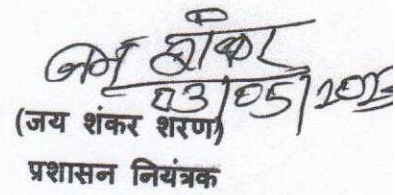 जय शंकर
03/05/2023
(जय शंकर शरण)
प्रशासन नियंत्रक